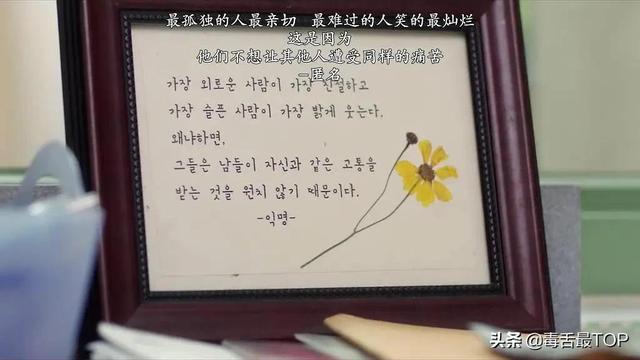 最孤独的人最亲切 最难过的人笑的最灿烂
这是因为
他们不想让其他人遭受同样的痛苦
-匿名
가장 외로운 사람이 가장 친절하고
가장 슬픈 사람이 가장 밝게 웃는다.
왜냐하면,
그들은 남들이 자신과 같은 고통을
받는 것을 원치 않기 때문이다.
-익명-
头条 @毒舌最TOP